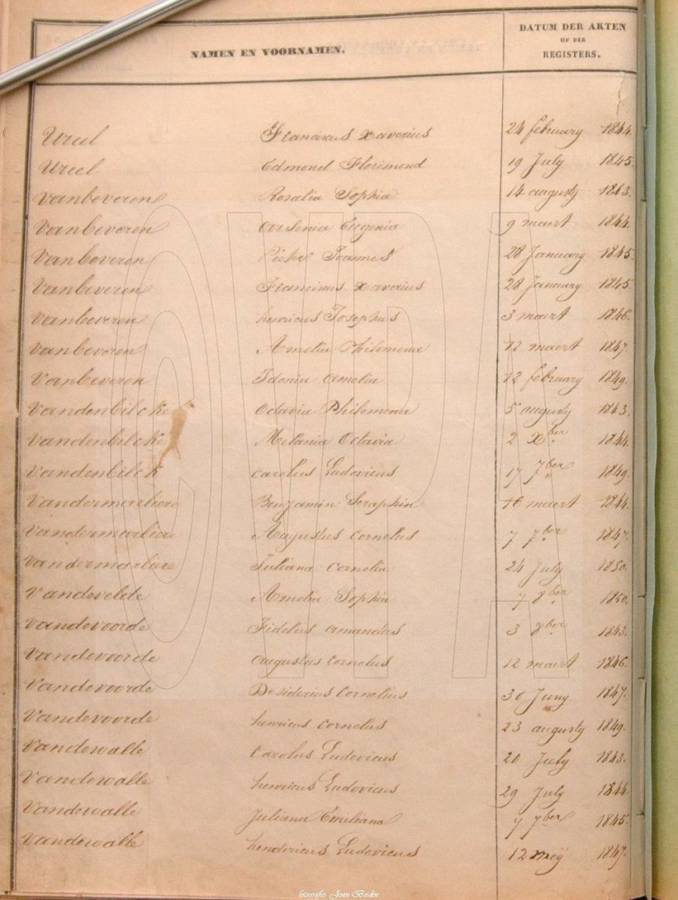 NAMEN EN VOORNAMEN. DATUM DER AKTEN
OF DER
REGISTERS.
Ureel Franciscus Xaverius 24 february 1844.
Ureel Edmond Florimond 19 July 1845.
Vanbeveren Rosalia Sophia 14 augusty 1843.
Vanbeveren Eugenia 9 maart 1844.
Vanbeveren Joannes 28 January 1845.
Vanbeveren Franciscus Xaverius 28 January 1845.
Vanbeveren henricus Josephus 3 maart 1846.
Vanbeveren Amelia Philomena 12 maart 1847.
Vanbeveren Idonia amelia 12 february 1849.
Vandenbilcke Octavia Philomena 5 augusty 1843.
Vandenbilcke Melania Octavia 2 Xber 1844.
Vandenbilck carolus Ludovicus 17 7ber 1849.
Vandermarliere Benjamin Seraphin 16 maart 1844.
Vandermarliere Augustus Cornelus 7 7ber 1847.
Vandermarliere Juliana Cornelia 24 July 1850.
Vandevelde Amelia Sophia 7 1850.
Vandevoorde Fidelus amandus 3 1843.
Vandevoorde augustus cornelus 12 maart 1846.
Vandevoorde Desiderius Cornelius 30 Juny 1847.
Vandevoorde henricus cornelus 23 augusty 1849.
Vandewalle Carolus Ludovicus 20 July 1843.
Vandewalle henricus Ludovicus 29 July 1844.
Vandewalle Juliana Emiliana 7 7ber 1845.
Vandewalle hendericus Ludovicus 12 meÿ 1847.
©VVRA